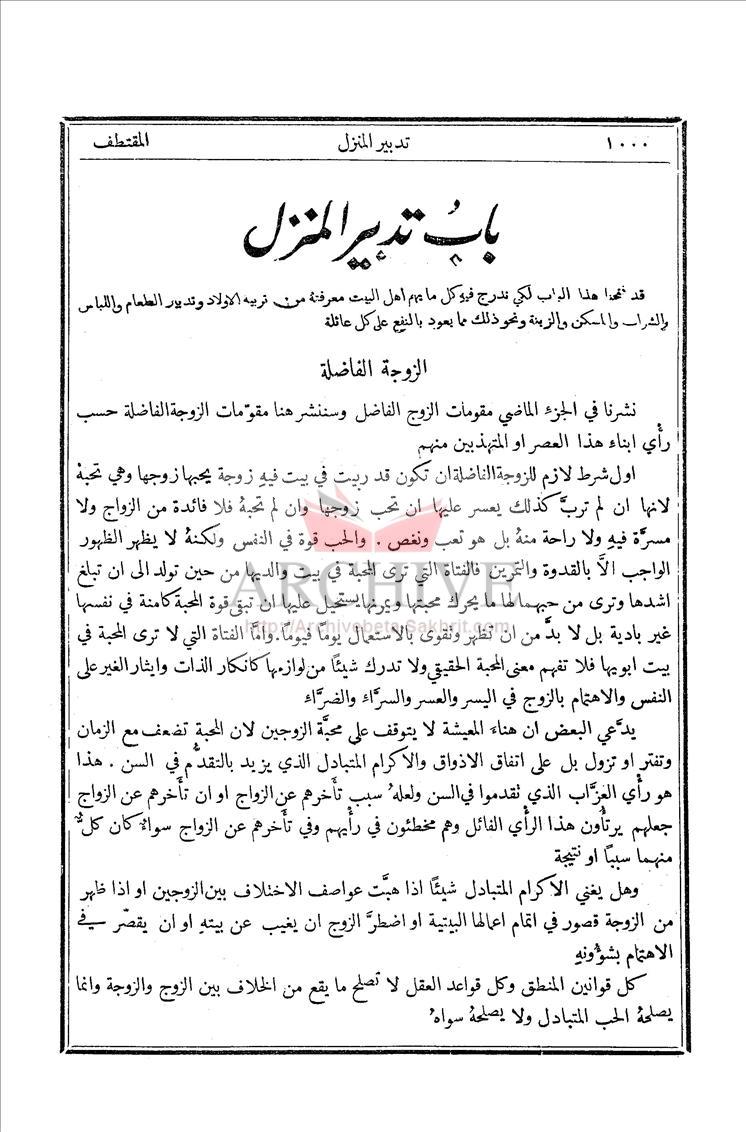 ١٠٠٠ تدبير المنزل المقتطف
بابُ تدبير المنزل
قد فتحنا هذا الباب لكي ندرج فيهِ كل ما يهم اهل البيت معرفتهُ من تربية الاولاد وتدبير الطعام واللباس
والشراب والمسكن والزينة ونحو ذلك مما يعود بالنفع على كل عائلة
الزوجة الفاضلة
نشرنا في الجزء الماضي مقومات الزوج الفاضل وسننشر هنا مقوّمات الزوجة الفاضلة حسب
رأي ابناء هذا العصر او المتهذبين منهم
اول شرط لازم للزوجة الفاضلة ان تكون قد ربيت في بيت فيهِ زوجة يحبها زوجها وهي تحبهُ
لانها ان لم تربَّ كذلك يعسر عليها ان تحب زوجها وان لم تحبهُ فلا فائدة من الزواج ولا
مسرَّة فيهِ ولا راحة منهُ بل هو تعب ونغص . والحب قوة في النفس ولكنهُ لا يظهر الظهور
الواجب الاَّ بالقدوة والتمرين فالفتاة التي ترى المحبة في بيت والديها من حين تولد الى ان تبلغ
اشدها وترى من حبهما لها ما يحرك محبتها ويمرنها يستحيل عليها ان تبقى قوة المحبة كامنة في نفسها
غير بادية بل لا بدَّ من ان تظهر وتقوى بالاستعمال يوماً فيوماً. وامَّا الفتاة التي لا ترى المحبة في
بيت ابويها فلا تفهم معنى المحبة الحقيقي ولا تدرك شيئاً من لوازمها كانكار الذات وايثار الغير على
النفس والاهتمام بالزوج في اليسر والعسر والسرَّاء والضرَّاء
يدَّعي البعض ان هناء المعيشة لا يتوقف على محبَّة الزوجين لان المحبة تضعف مع الزمان
وتفتر او تزول بل على اتفاق الاذواق والاكرام المتبادل الذي يزيد بالتقدُّم في السن . هذا
هو رأي العزَّاب الذي تقدموا في السن ولعلهُ سبب تأخرهم عن الزواج او ان تأخرهم عن الزواج
جعلهم يرتأون هذا الرأي الفائل وهم مخطئون في رأيهم وفي تأخرهم عن الزواج سوالا كان كلٌّ
منهما سبباً او نتيجة
وهل يغني الاكرام المتبادل شيئاً اذا هبَّت عواصف الاختلاف بين الزوجين او اذا ظهر
من الزوجة قصور في اتمام اعمالها البيتية او اضطرَّ الزوج ان يغيب عن بيته او ان يقصّر في
الاهتمام بشؤونهِ
كل قوانين المنطق وكل قواعد العقل لا تصلح ما يقع من الخلاف بين الزوج والزوجة وانما
يصلحهُ الحب المتبادل ولا يصلحهُ سواهُ
ARCHIVE
http://Archivebeta.Sakhrit.com